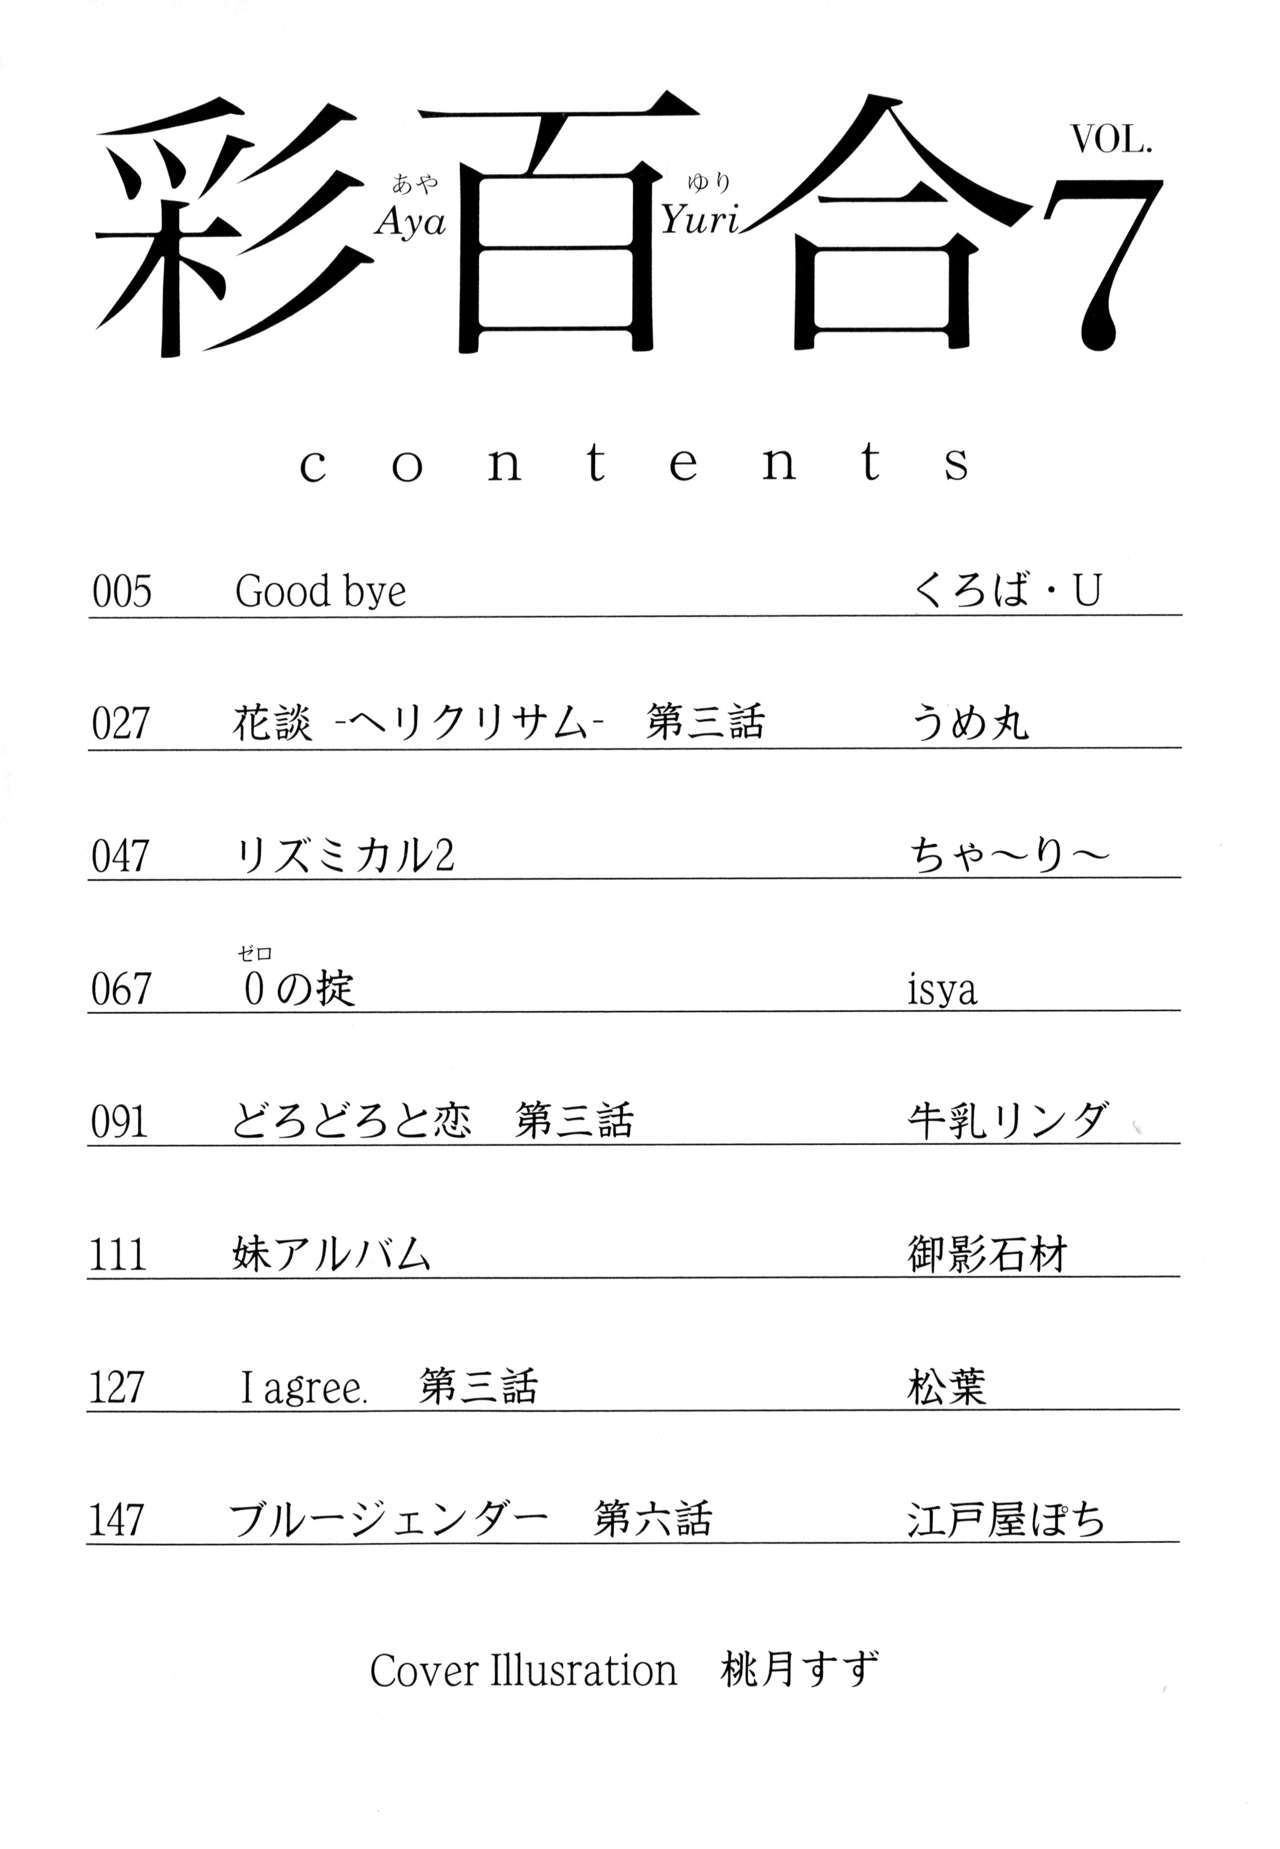 彩百合 VOL.7
あや ゆり
Aya Yuri
contents
005 Good bye くろば・U
027 花談 -ヘリクリサム- 第三話 うめ丸
047 リズミカル2 ちゃ〜り〜
ゼロ
067 0の掟 isya
091 どろどろと恋 第三話 牛乳リンダ
111 妹アルバム 御影石材
127 I agree. 第三話 松葉
147 ブルージェンダー 第六話 江戸屋ぽち
Cover Illusration 桃月すず